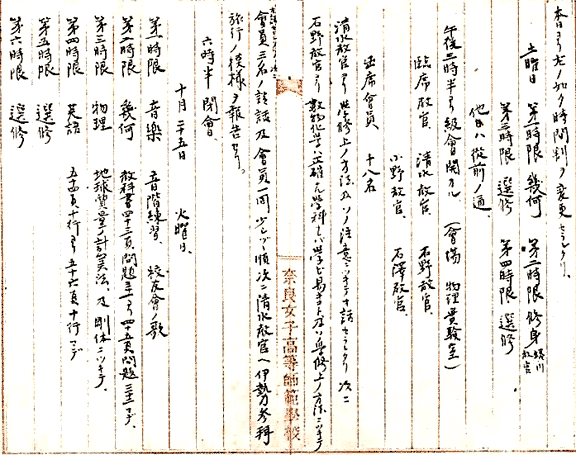 本日ヨリ左ノ如ク時間割ヲ変更セラレタリ。
土曜日 第一時限 幾何 第二時限 修身 堀川教官
第三時限 選修 第四時限 選修
他日ハ従前ノ通。
午後三時半ヨリ級会開カル (会場 物理実験室)
臨席教官 清水教官 石野教官
小野教官 石澤教官
出席会員 十八名
清水教官ヨリ学修上ノ方法及ソノ注意ニツキテ話セラレタリ 次ニ
石野教官ヨリ 数物化学ハ正確ナル学科
会員三名ノ談話及会員一同少シヅツ順次ニ清水教官ヘ伊勢参拝
旅行ノ模様ヲ報告セリ。
六時半閉会。
十月二十五日 火曜日。
第一時限 音楽 音階練習。校友会ノ歌
第二時限 幾何 教科書四十三頁問題
第三時限 物理 地球質量ノ計算法及剛体ニツキテ。
第四時限 英語 五十五頁十行ヨリ五十六頁十行マデ
第五時限 選修
第六時限 選修
奈良女子高等師範学校